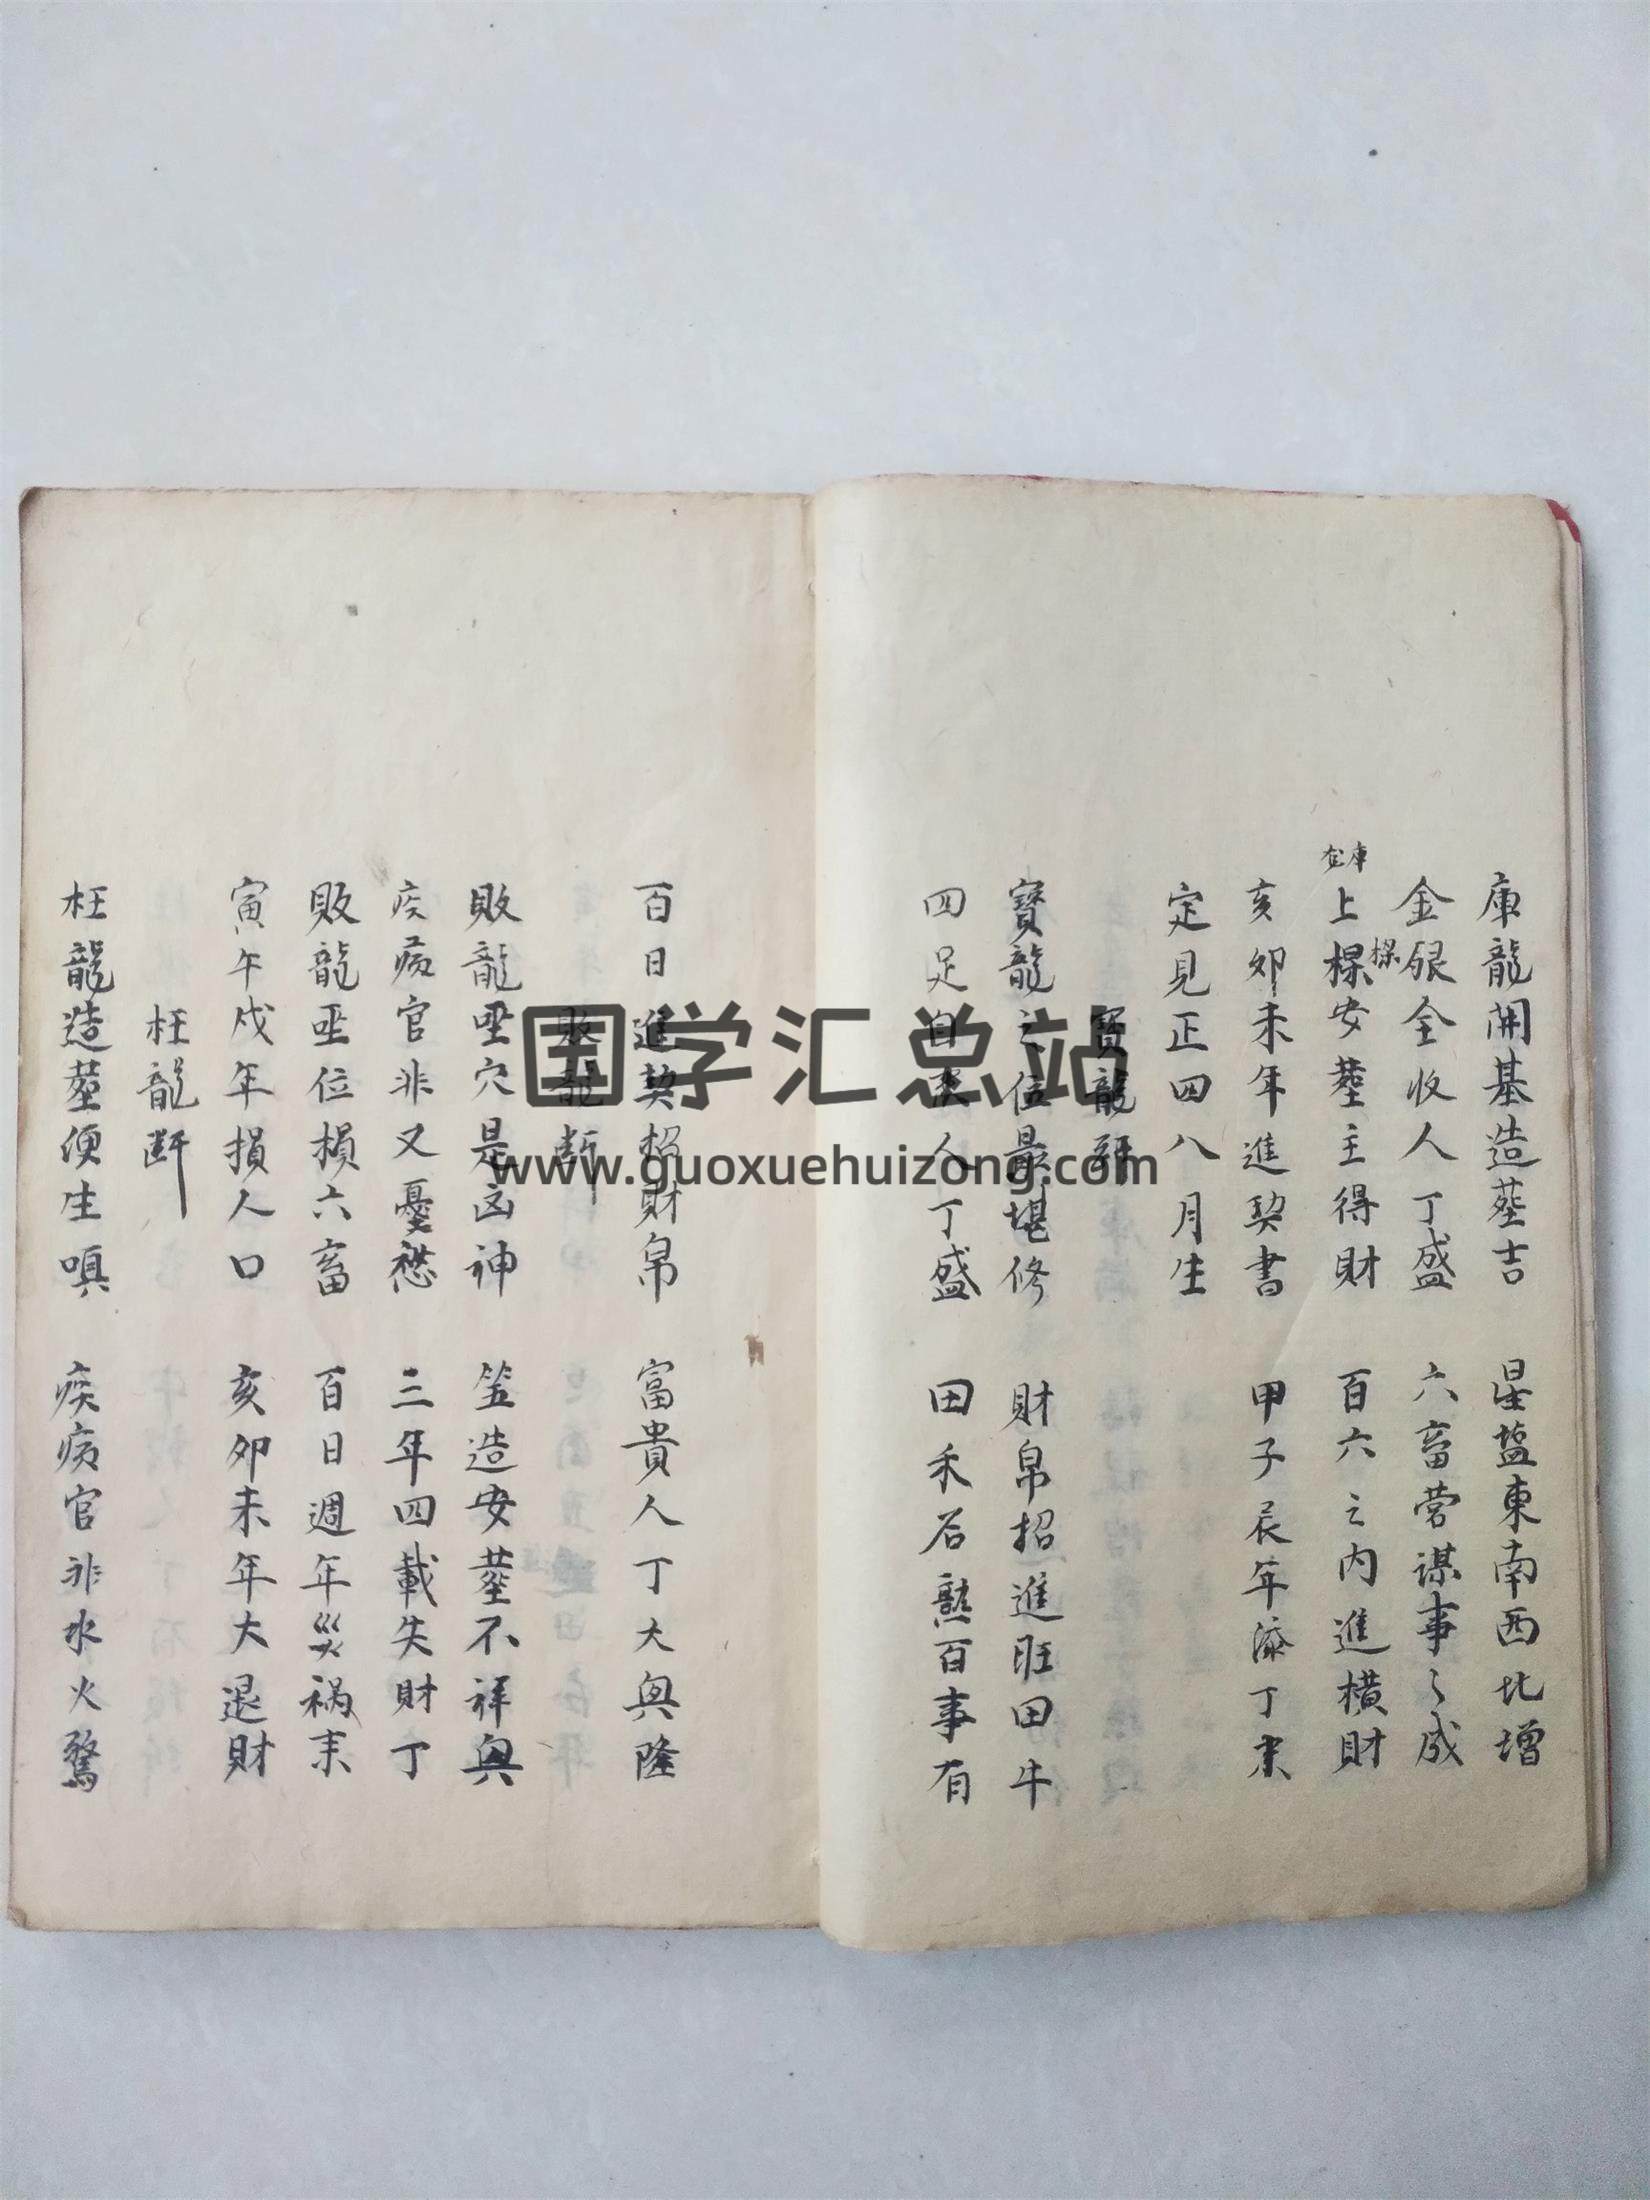 庫龍開基造塟吉 星盐東南西北增
金銀全收人丁盛 六畜营谋事〻成
庫在
上樑安塟主得財 百六之内進横財
樑
亥卯未年進契書 甲子辰年添丁來
定見正四八月生
寶龍斷
寶龍之位最堪修 財帛招進旺田牛
四足自 人丁盛 田禾石 百事有
百日進契招財帛 富貴人丁大興隆
敗龍斷
敗龍 穴是凶神 造安塟不祥興
疾病官非又憂愁 三年四載失財丁
敗龍 位損六畜 百日週年災禍来
寅午戌年損人口 亥卯未年大退財
枉龍斷
枉龍造塟便生嗔 疾病官非水火驚
国学汇总站
www.guoxuehuizong.com